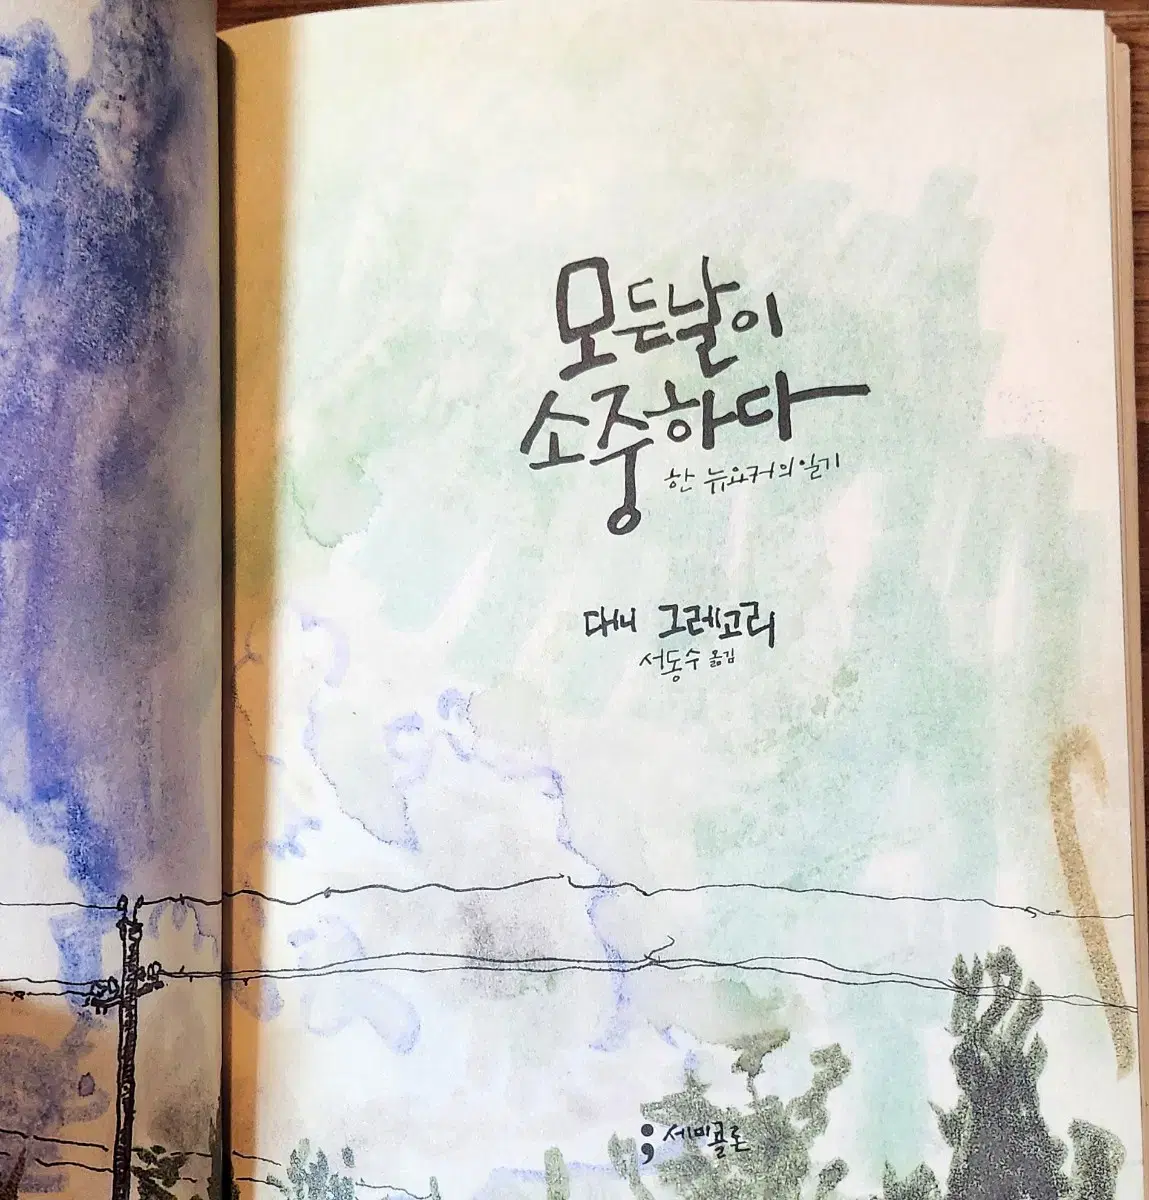 모든 날이
소중하다
한 뉴요커의 일기
대니 그레고리
서동수 옮김
; 세미콜론